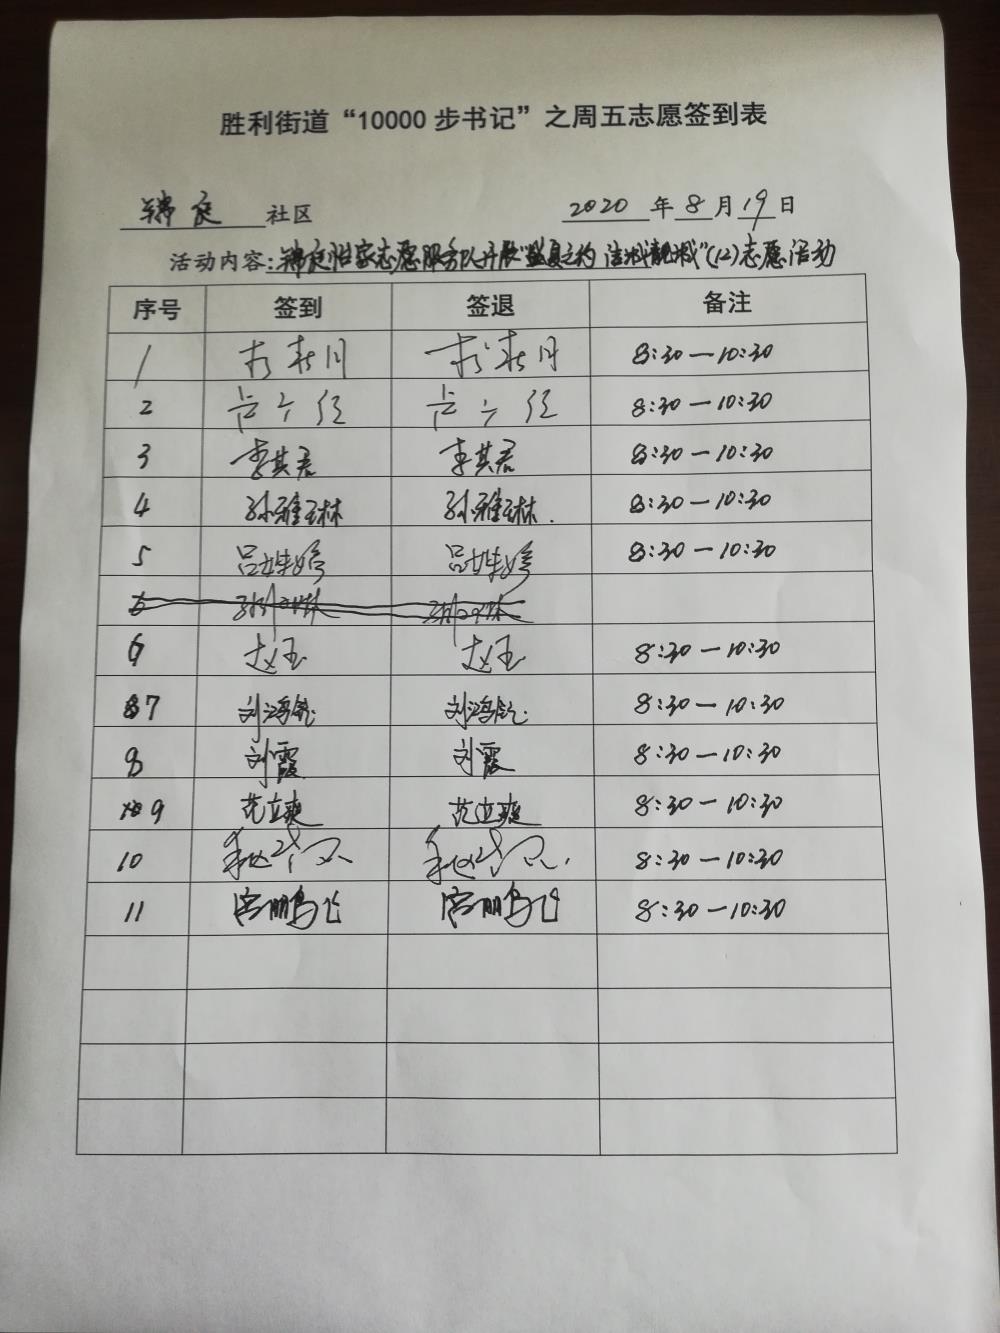 胜利街道“10000步书记”之周五志愿签到表
锦庭 社区 2020 年 8 月 19 日
活动内容:锦庭怡家志愿服务队开展“盛夏之约 洁城靓城”(12)志愿活动
序号 签到 签退 备注
1 春月 春月 8:30—10:30
2 8:30—10:30
3 李其君 李其君 8:30—10:30
4 孙雅琳 孙雅琳. 8:30—10:30
5 吕姓婷 吕姓婷 8:30—10:30
6 赵玉 赵玉 8:30—10:30
7 刘鸿钇 刘鸿钇 8:30—10:30
8 刘霞 刘霞 8:30—10:30
9 范立爽 范立爽 8:30—10:30
10 8:30—10:30
11 宫鹏飞 宫鹏飞 8:30—10:30